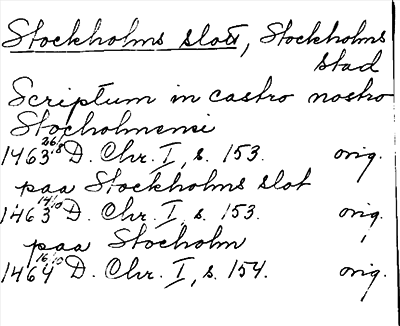 Stockholms slott, Stockholms
stad
Scriptum in castro nostro
Stocholmensi
1463 26/8 D. Chr. I, s. 153. orig.
paa Stockholms slot
1463 14/10 D. Chr. I, s. 153. orig.
paa Stocholm
1464 16/10 D. Chr. I, s. 154. orig.